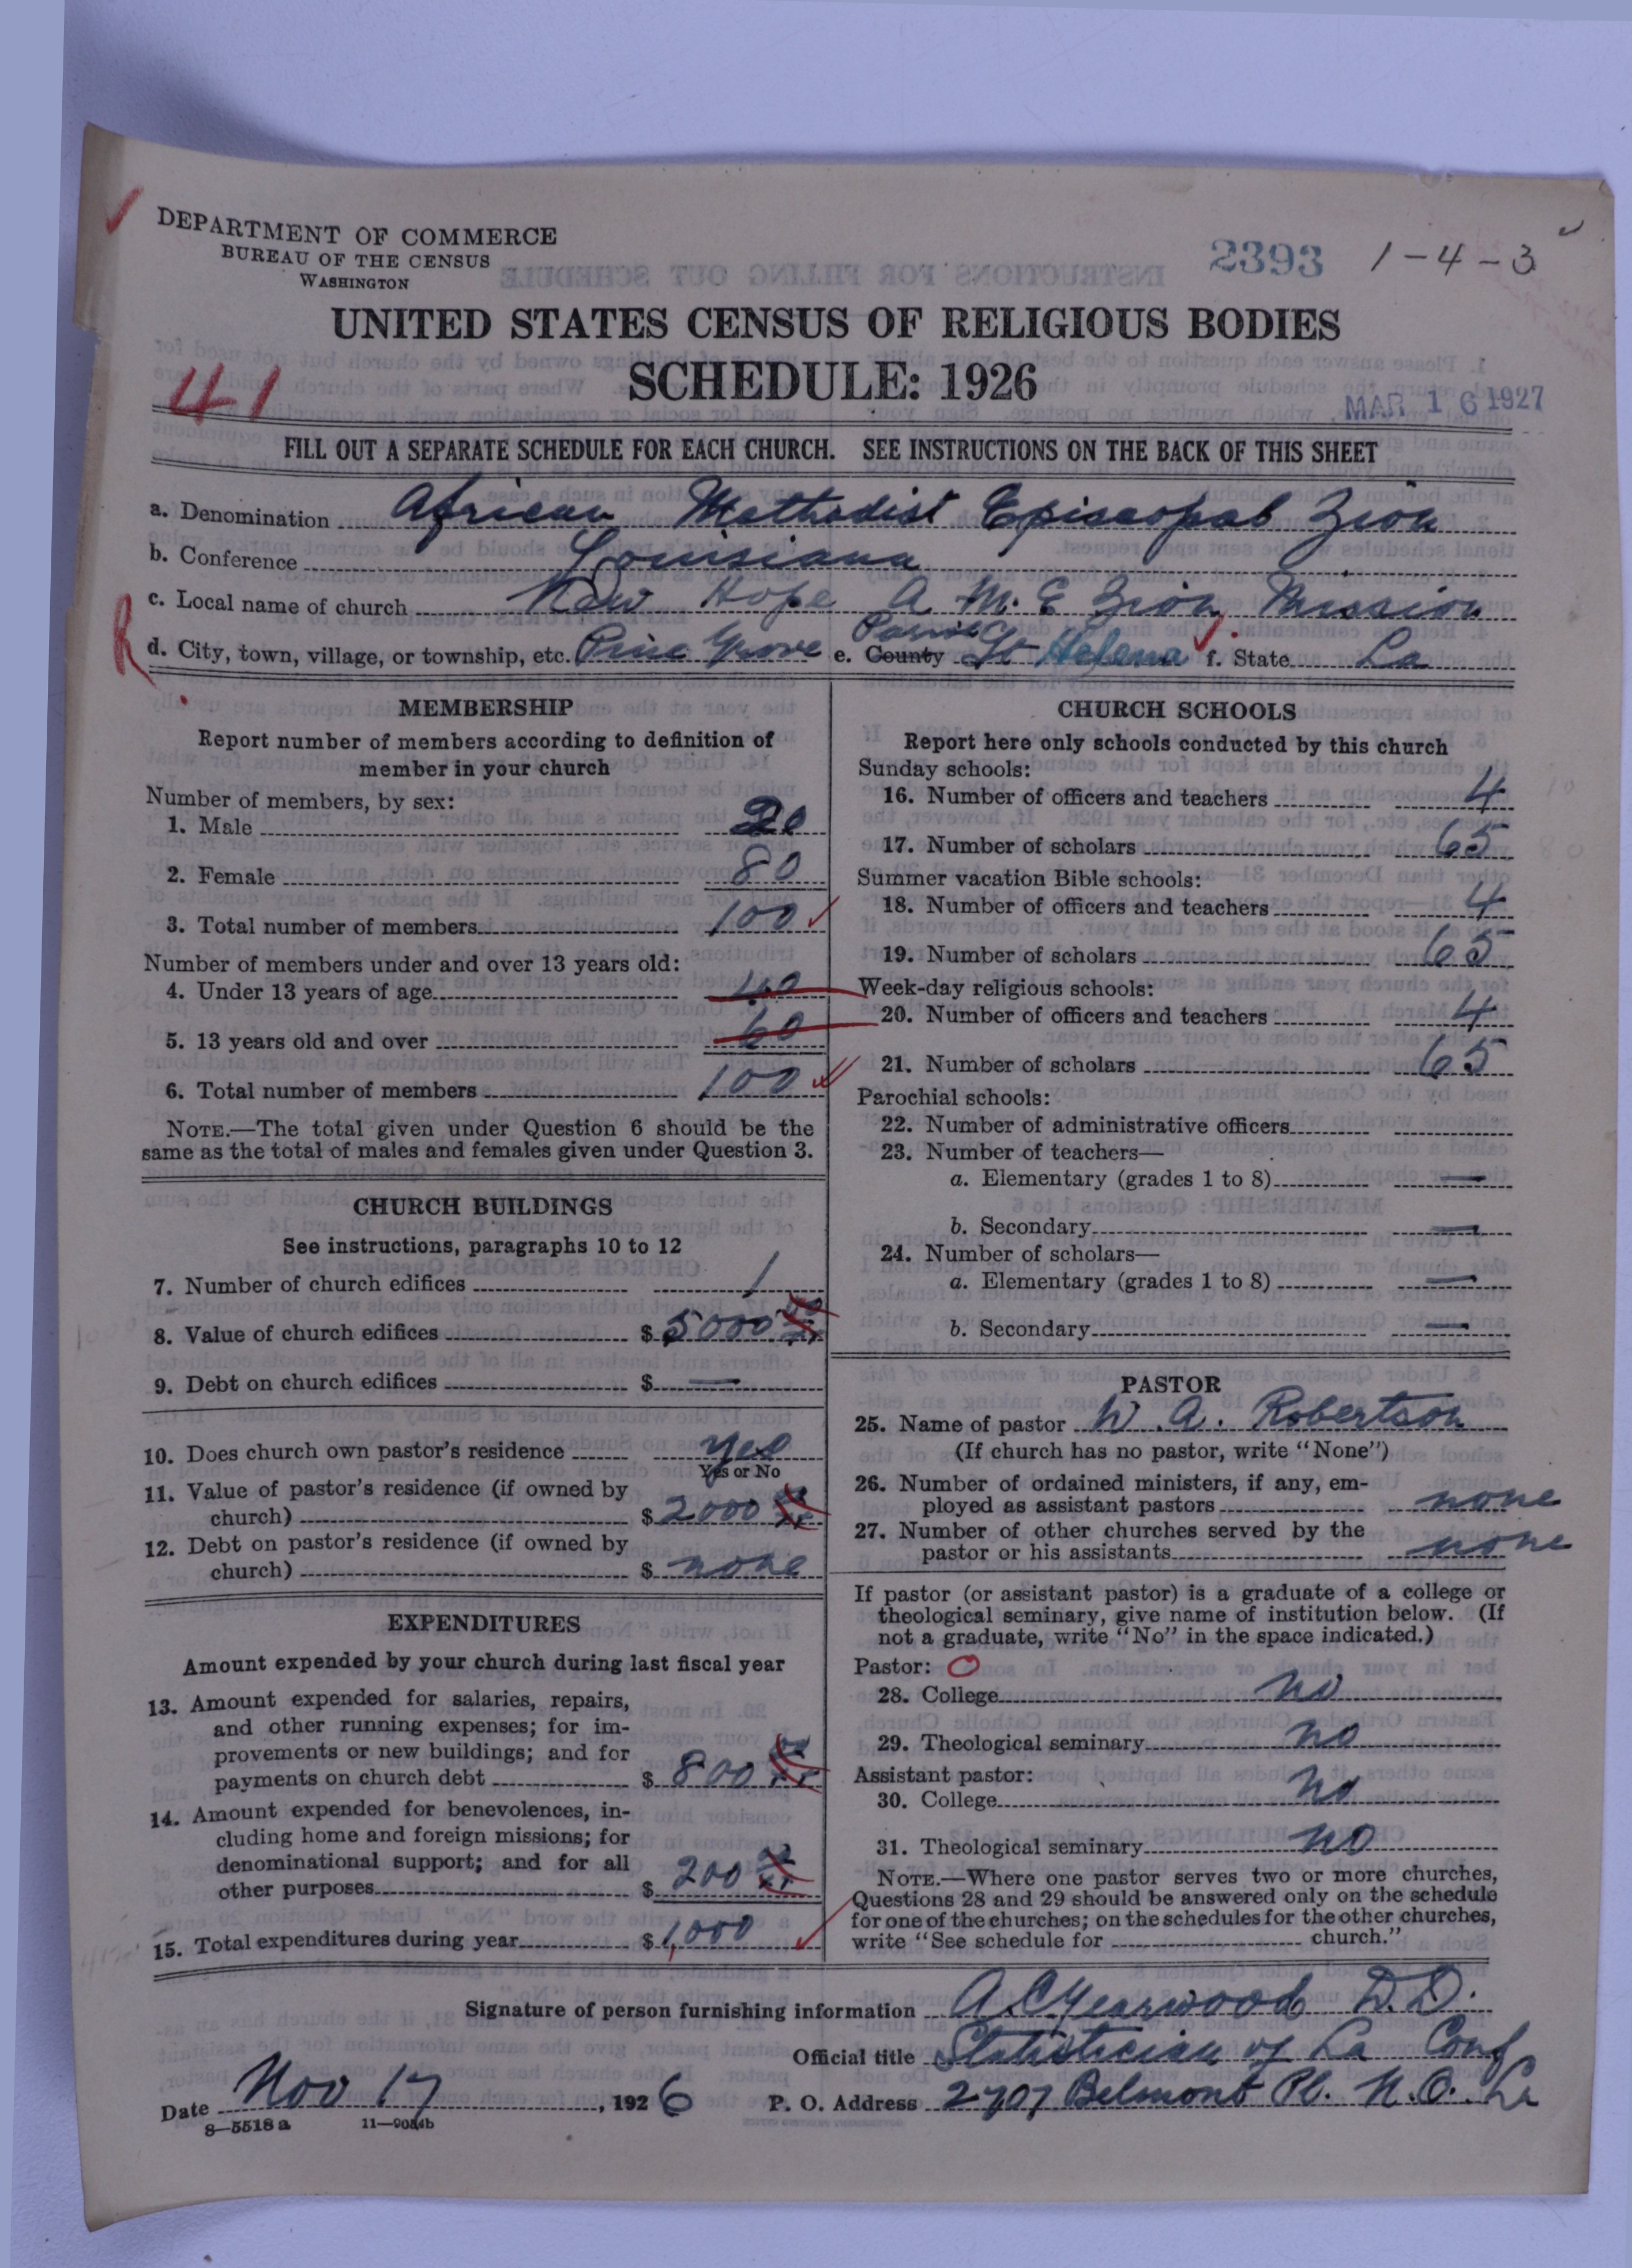 DEPARTMENT OF COMMERCE
BUREAU OF THE CENSUS
WASHINGTON
2393 1-4-3
UNITED STATES CENSUS OF RELIGIOUS BODIES
SCHEDULE: 1926
41
MAR 16 1927
FILL OUT A SEPARATE SCHEDULE FOR EACH CHURCH. SEE INSTRUCTIONS ON THE BACK OF THIS SHEET
a. Denomination African Methodist Episcopal Zion
b. Conference Louisiana
c. Local name of church New Hope A M. E Zion Mission
R
d. City, town, village, or township, etc. Pine Grove e. County Parish St Helena f. State La
MEMBERSHIP
Report number of members according to definition of
member in your church
Number of members, by sex:
1. Male 20
2. Female 80
3. Total number of members 100
Number of members under and over 13 years old:
4. Under 13 years of age 40
5. 13 years old and over 60
6. Total number of members 100
NOTE.—The total given under Question 6 should be the
same as the total of males and females given under Question 3.
CHURCH BUILDINGS
See instructions, paragraphs 10 to 12
7. Number of church edifices 1
8. Value of church edifices $ 5000
9. Debt on church edifices $ —
10. Does church own pastor's residence Yes
Yes or No
11. Value of pastor's residence (if owned by
church) $ 2000
12. Debt on pastor's residence (if owned by
church) $ none
EXPENDITURES
Amount expended by your church during last fiscal year
13. Amount expended for salaries, repairs,
and other running expenses; for im-
provements or new buildings; and for
payments on church debt $ 800
14. Amount expended for benevolences, in-
cluding home and foreign missions; for
denominational support; and for all
other purposes $ 200
15. Total expenditures during year $ 1,000
CHURCH SCHOOLS
Report here only schools conducted by this church
Sunday schools:
16. Number of officers and teachers 4
17. Number of scholars 65
Summer vacation Bible schools:
18. Number of officers and teachers 4
19. Number of scholars 65
Week-day religious schools:
20. Number of officers and teachers 4
21. Number of scholars 65
Parochial schools:
22. Number of administrative officers
23. Number of teachers—
a. Elementary (grades 1 to 8) —
b. Secondary —
24. Number of scholars—
a. Elementary (grades 1 to 8) —
b. Secondary —
PASTOR
25. Name of pastor W. A. Robertson
(If church has no pastor, write "None")
26. Number of ordained ministers, if any, em-
ployed as assistant pastors none
27. Number of other churches served by the
pastor or his assistants none
If pastor (or assistant pastor) is a graduate of a college or
theological seminary, give name of institution below. (If
not a graduate, write "No" in the space indicated.)
Pastor:
28. College no
29. Theological seminary no
Assistant pastor:
30. College no
31. Theological seminary no
NOTE.—Where one pastor serves two or more churches,
Questions 28 and 29 should be answered only on the schedule
for one of the churches; on the schedules for the other churches,
write "See schedule for church."
Signature of person furnishing information A. C. Yearwood D.D.
Official title Statistician of La Conf
Date Nov 17, 1926 P. O. Address 2707 Belmont Pl. N.O. La
8—5518 a 11—9034b